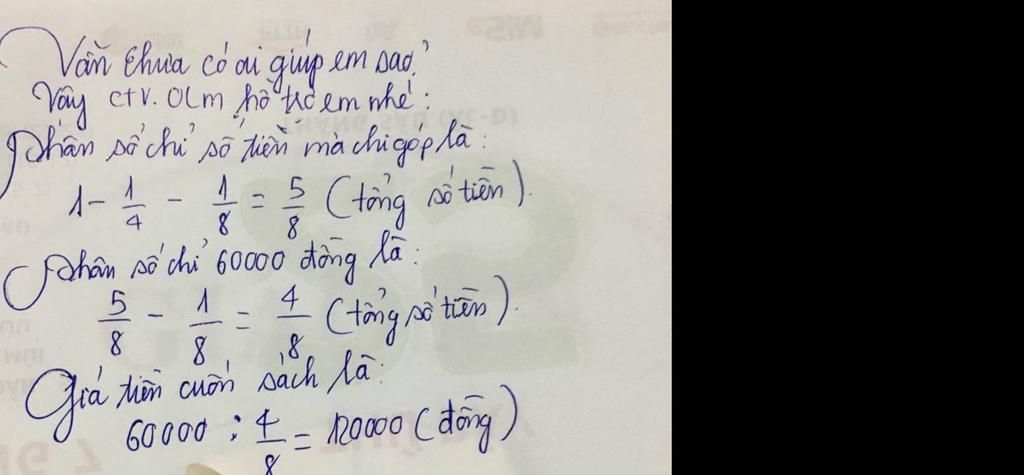 Vẫn chưa có ai giúp em sao?
Vậy CTV. OLM hỗ trợ em nhé:
Phân số chỉ số tiền mà chị góp là:
1 - 1/4 - 1/8 = 5/8 (tổng số tiền).
Phân số chỉ 60000 đồng là:
5/8 - 1/8 = 4/8 (tổng số tiền).
Giá tiền cuốn sách là:
60000 : 4/8 = 120000 (đồng)